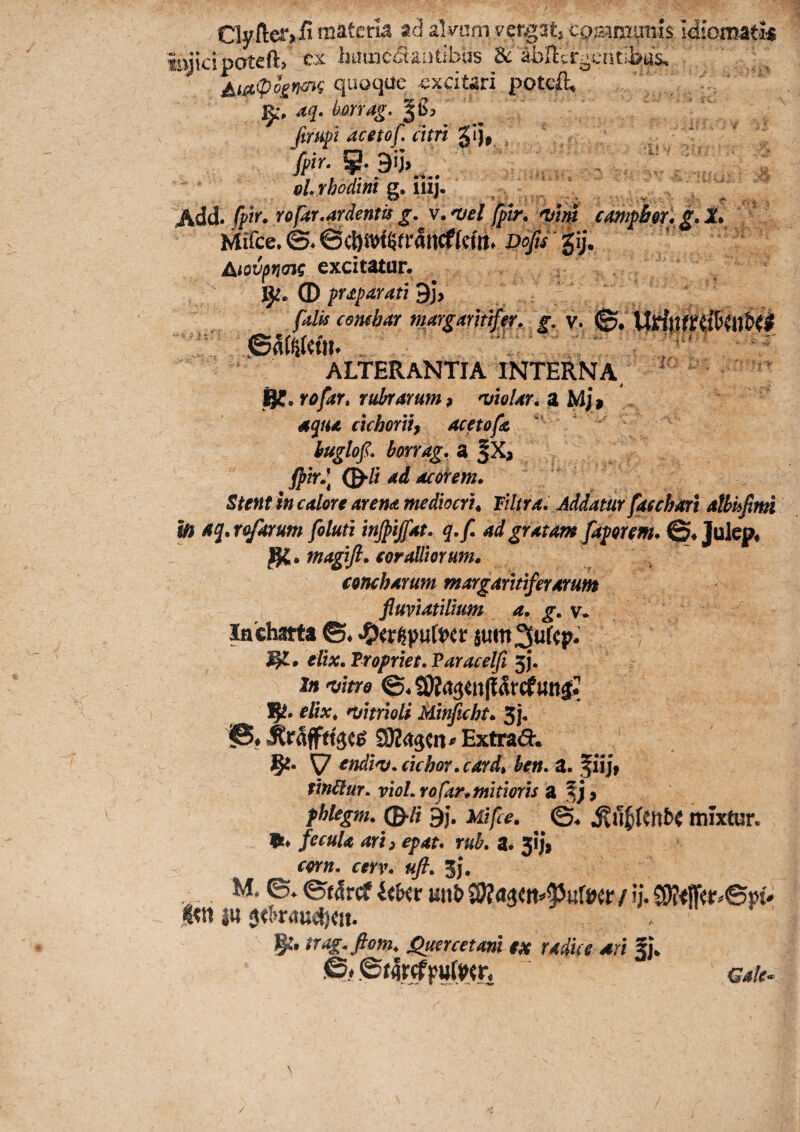 Clyster, si materia ad alvum vergat, communis idiomatis
injici potest, ex humectantibus & abstergentibus.
Διαφόρησις quoque excitari potest,
℞. aq. borrag. ℥ß,
sirupi acetos. citri ℥ij,
spir. ☿. ℈ij,
ol. rhodini g. iiij.
Add. spir. rosar. ardentis g. v. vel spir. vini camphor. g. X.
Misce. S. Schwitzträncklein. Dosis ℥ij.
Διούρησις excitatur.
℞. ⦶ præparati ℈j,
salis conchar margaritifer. g. v. S. Urintreibendes
Sältzlein.
ALTERANTIA INTERNA
℞. rosar. rubrarum, violar. a Mj,
aqua cichorii, acetosæ
buglos. borrag. a ℥X,
spir. ⊕li ad acorem.
Stent in calore arenæ mediocri. Filtra. Addatur sacchari albissimi
in aq. rosarum soluti inspissat. q. s. ad gratam saporem. S. Julep.
℞. magist. coralliorum.
concharum margaritiferarum
fluviatilium a. g. v.
In charta S. Hertzpulver zum Julep.
℞. elix. Propriet. Paracelsi ʒj.
In vitro S. Magenstärckung.
℞. elix. vitrioli Minsicht. ʒj.
S. Kräfftiges Magen-Extract.
℞. ▽ endiv. cichor. card. ben. a. ℥iij,
tinctur. viol. rosar. mitioris a ℥j,
phlegm. ⊕li ℈j. Misce. S. Kühlende mixtur.
℞. fecula ari, epat. rub. a. ʒij,
corn. cerv. ust. ʒj.
M. S. Stärck Leber und Magen-Pulver / ij. Messer-Spi-
tzen zu gebrauchen.
℞. trag. stom. Quercetani ex radice ari ℥j.
S. Stärckpulver.
Gale-